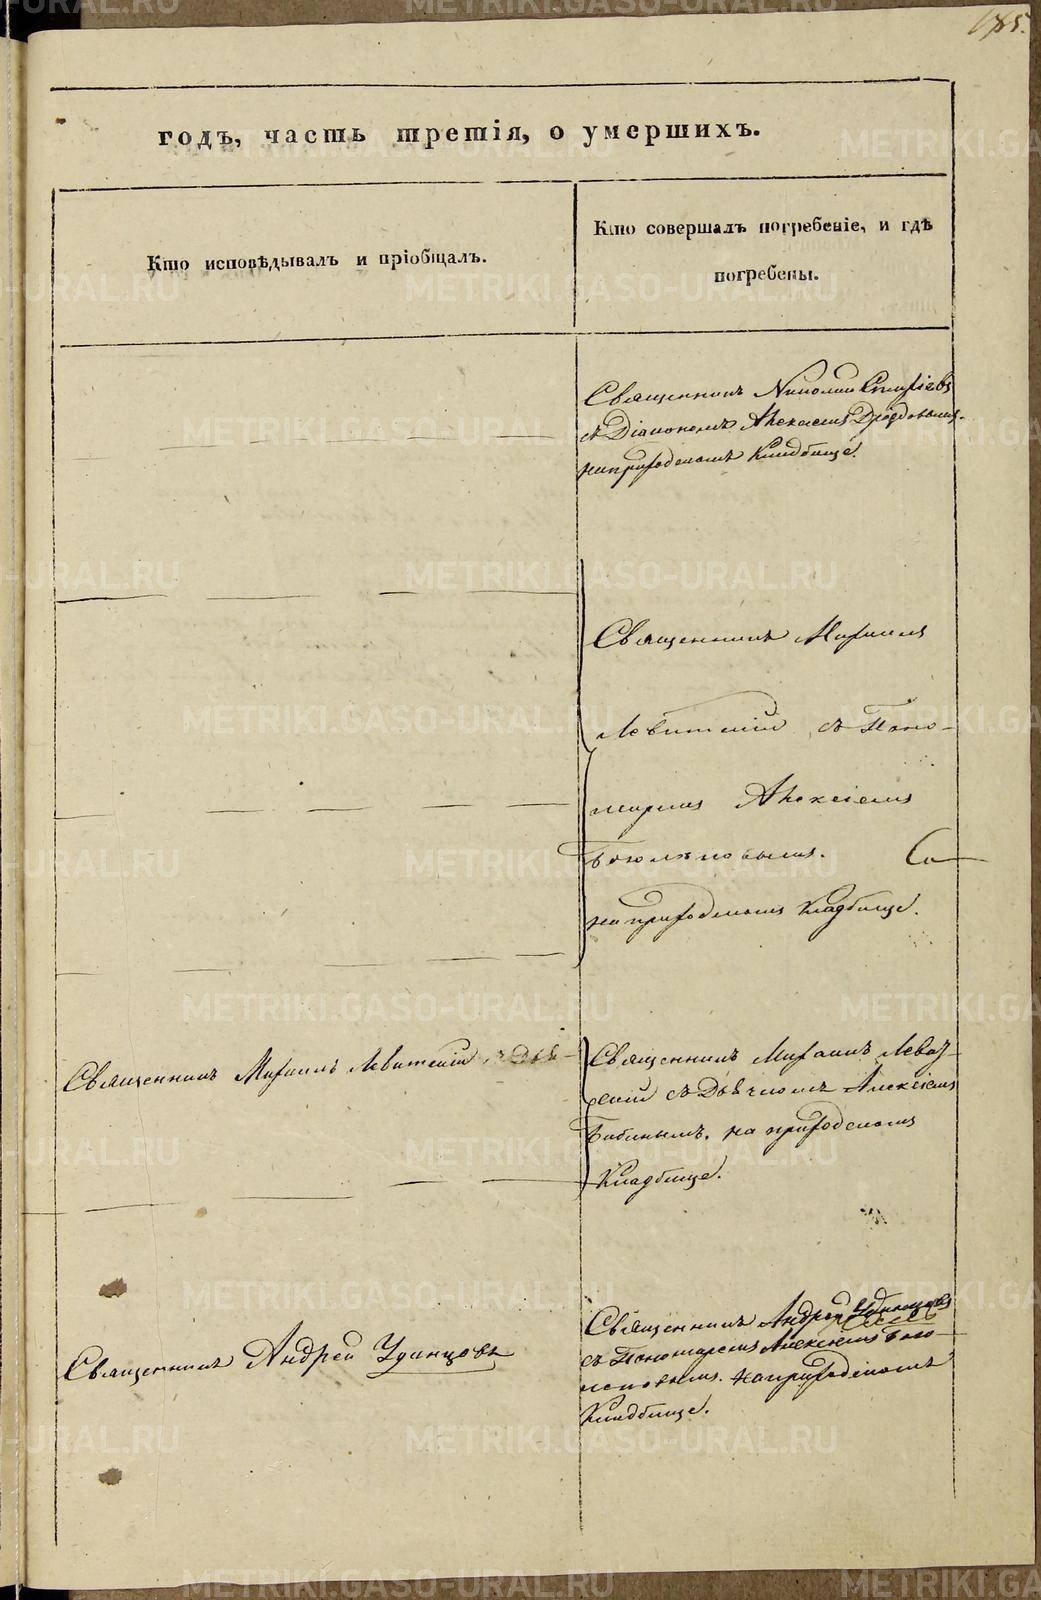 185.
годъ, часть третія, о умершихъ.
Кто исповѣдывалъ и пріобщалъ.
Кто совершалъ погребеніе, и гдѣ
погребены.
Священникъ Николай
съ Діакономъ Алексіемъ Дроздовымъ.
на приходскомъ Кладбище.
Священникъ Михаилъ
Левитскій съ Поно-
маремъ Алексіемъ
Боголѣповымъ.
на приходскомъ Кладбище.
Священникъ Михаилъ Левитскій
Священникъ Михаилъ Левит-
скій съ Дьячкомъ Алексіемъ
Бабинымъ. на приходскомъ
Кладбище.
Священникъ Андрей Удинцовъ
Священникъ Андрей Удинцовъ
съ Пономаремъ Алексіемъ Бого-
леповымъ. на приходскомъ
Кладбище.
METRIKI.GASO-URAL.RU